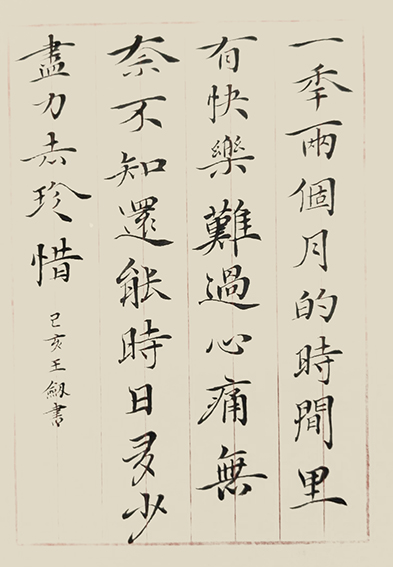 一秊兩個月的時間里
有快樂難過心痛無
奈不知還能時日多少
盡力去珍惜
己亥王劔書